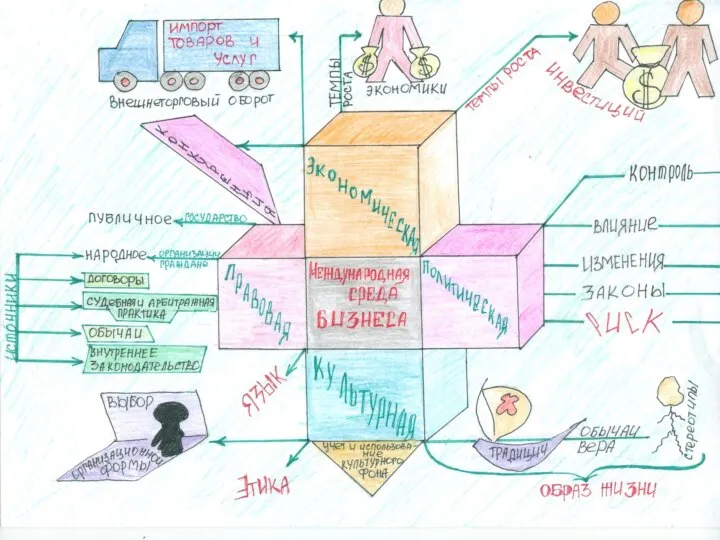 ИМПОРТ
ТОВАРОВ И
УСЛУГ
ВНЕШНЕТОРГОВЫЙ ОБОРОТ
ТЕМПЫ
РОСТА
ЭКОНОМИКИ
ТЕМПЫ РОСТА
ИНВЕСТИЦИЙ
КОНКУРЕНЦИЯ
ЭКОНОМИЧЕСКАЯ
КОНТРОЛЬ
ВЛИЯНИЕ
ИЗМЕНЕНИЯ
ЗАКОНЫ
РИСК
ПУБЛИЧНОЕ
ГОСУДАРСТВО
НАРОДНОЕ
ОРГАНИЗАЦИИ
ГРАЖДАНЕ
ИСТОЧНИКИ
ДОГОВОРЫ
СУДЕБНАЯ И АРБИТРАЖНАЯ
ПРАКТИКА
ОБЫЧАИ
ВНУТРЕННЕЕ
ЗАКОНОДАТЕЛЬСТВО
ПРАВОВАЯ
МЕЖДУНАРОДНАЯ
СРЕДА
БИЗНЕСА
ПОЛИТИЧЕСКАЯ
КУЛЬТУРНАЯ
ЯЗЫК
ВЫБОР
ОРГАНИЗАЦИОННОЙ
ФОРМЫ
ЭТИКА
УЧЕТ И ИСПОЛЬЗОВА-
НИЕ
КУЛЬТУРНОГО
ФОНА
ТРАДИЦИИ
ОБЫЧАИ
ВЕРА
СТЕРЕОТИПЫ
ОБРАЗ ЖИЗНИ